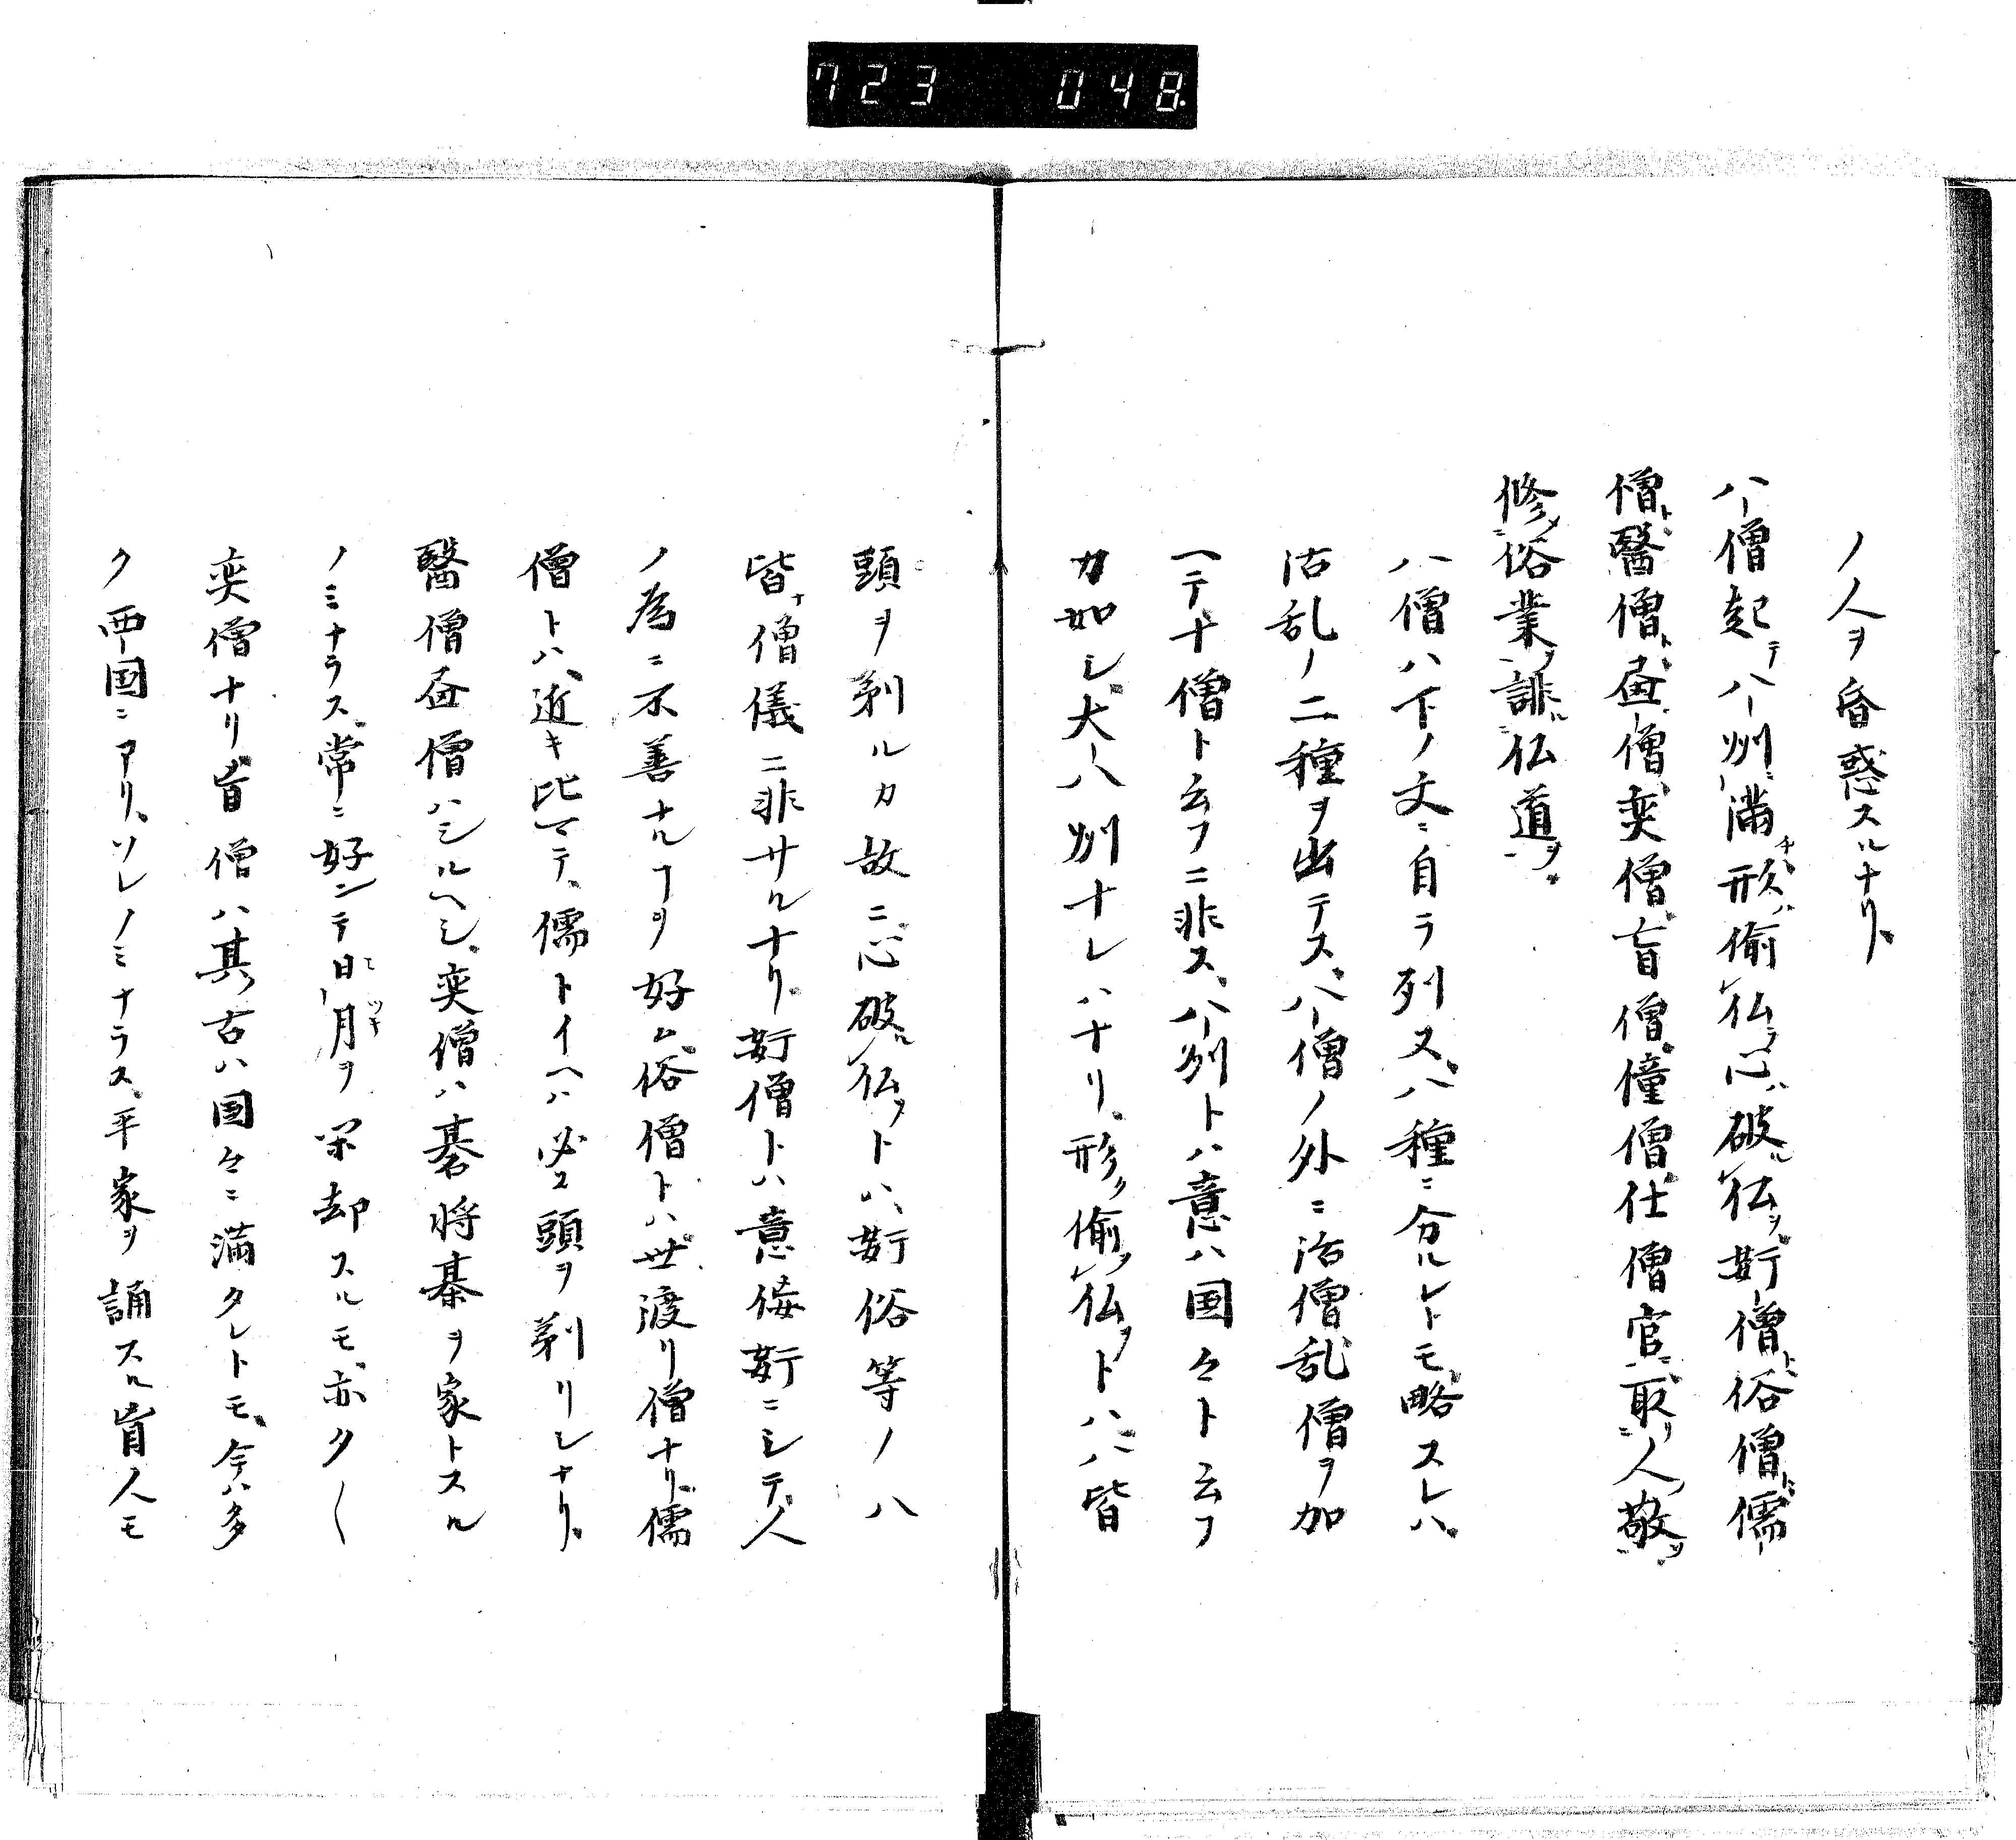 723 048
ノ人ヲ昏惑スルナリ、
八僧起テ八州ニ満形ハ偷仏ヲ心ハ破ル仏ヲ姧僧ト俗僧ト儒
僧ト醫僧ト畫僧奕僧盲僧僮僧仕僧官ニ取リ人ニ敬ヲ
修メ俗業ヲ誹ル仏道ヲ
八僧ハ下ノ文ニ自ラ列ヌ、八種ニ分ルレトモ、略スレハ、
沽乱ノ二種ヲ出テス、八僧ノ外ニ沽僧乱僧ヲ加
ヘテ、十僧ト云フニ非ス、八州トハ意ハ国々ト云フ
カ如シ、大八州ナレハナリ、形ハ偷仏ヲトハ、八皆
頭ヲ剃ルカ故ニ、心破ル仏ヲトハ、姧俗等ノ八
皆ナ僧儀ニ非サルナリ、姧僧トハ意侫姧ニシテ、人
ノ為ニ不善ナルヿヲ好ム、俗僧トハ世渡リ僧ナリ、儒
僧トハ、近キ比マテ、儒トイヘハ必ス頭ヲ剃リシナリ、
醫僧畫僧ハシルヘシ、奕僧ハ碁将棊ヲ家トスル
ノミナラス、常ニ好ンテ日月ヲ閑却スルモ亦タ〱
奕僧ナリ、盲僧ハ其古ハ国々ニ満タレトモ、今ハ多
ク西国ニアリ、ソレノミナラス、平家ヲ誦スル盲人モ